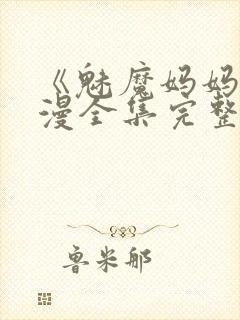 《魅魔妈妈
漫全集完整
鲁米那